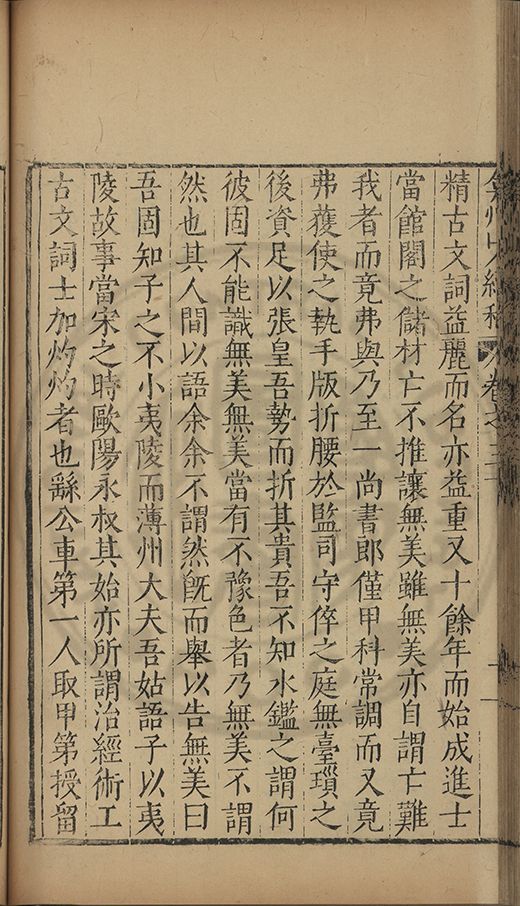 弇州山人續稿 卷之三十
精古文詞益麗而名亦益重又十餘年而始成進士
當館閣之儲材亡不推讓無美雖無美亦自謂亡難
我者而竟弗與乃至一尚書郎僅甲科常調而又竟
弗獲使之執手版折腰於監司守倅之庭無臺瑣之
後資足以張皇吾勢而折其貴吾不知水鑑之謂何
彼固不能識無美無美當有不豫色者乃無美不謂
然也其人間以語余余不謂然旣而舉以告無美曰
吾固知子之不小夷陵而薄州大夫吾姑語子以夷
陵故事當宋之時歐陽永叔其始亦所謂治經術工
古文詞士加灼灼者也繇公車第一人取甲第授留